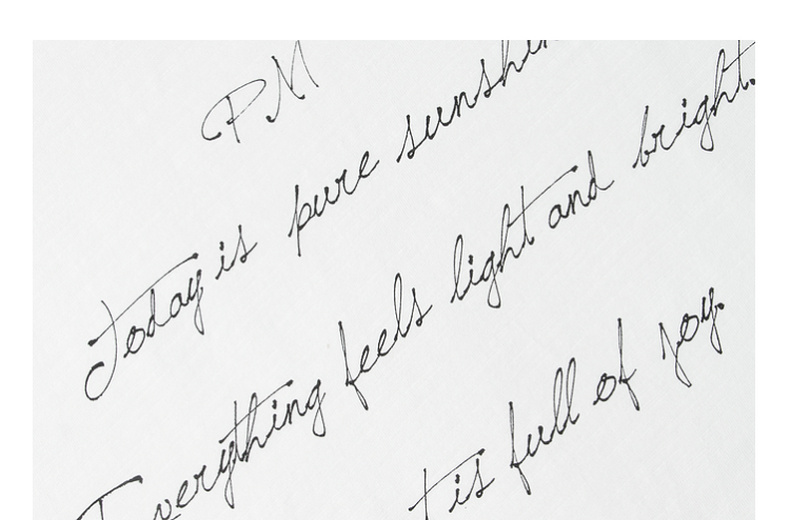 PM
Today is pure
Everything feels light and bright.
is full of joy.